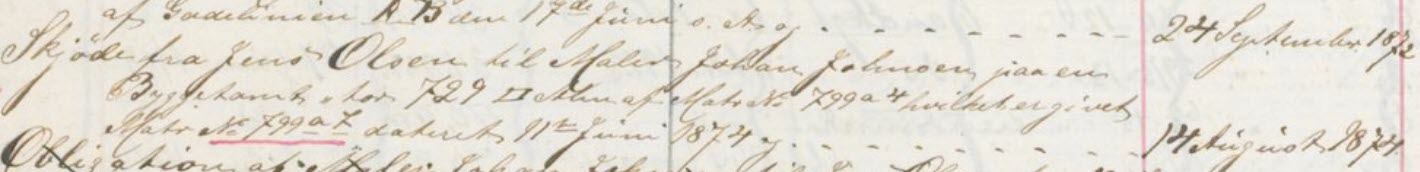 af Gadelinien A. B den 17de Juni s. A. og - - - - - - - - 24 September 1872
Skjöde fra Jens Olsen til Maler Johan Johnsen paa en
Byggetomt, stor 729 □ Alen af Matr No 799 a 4 hvilket er givet
Matr No 799 a 7 dateret 11te Juni 1874 og - - - - - - - - 14 August 1874.
Obligation af Maler Johan